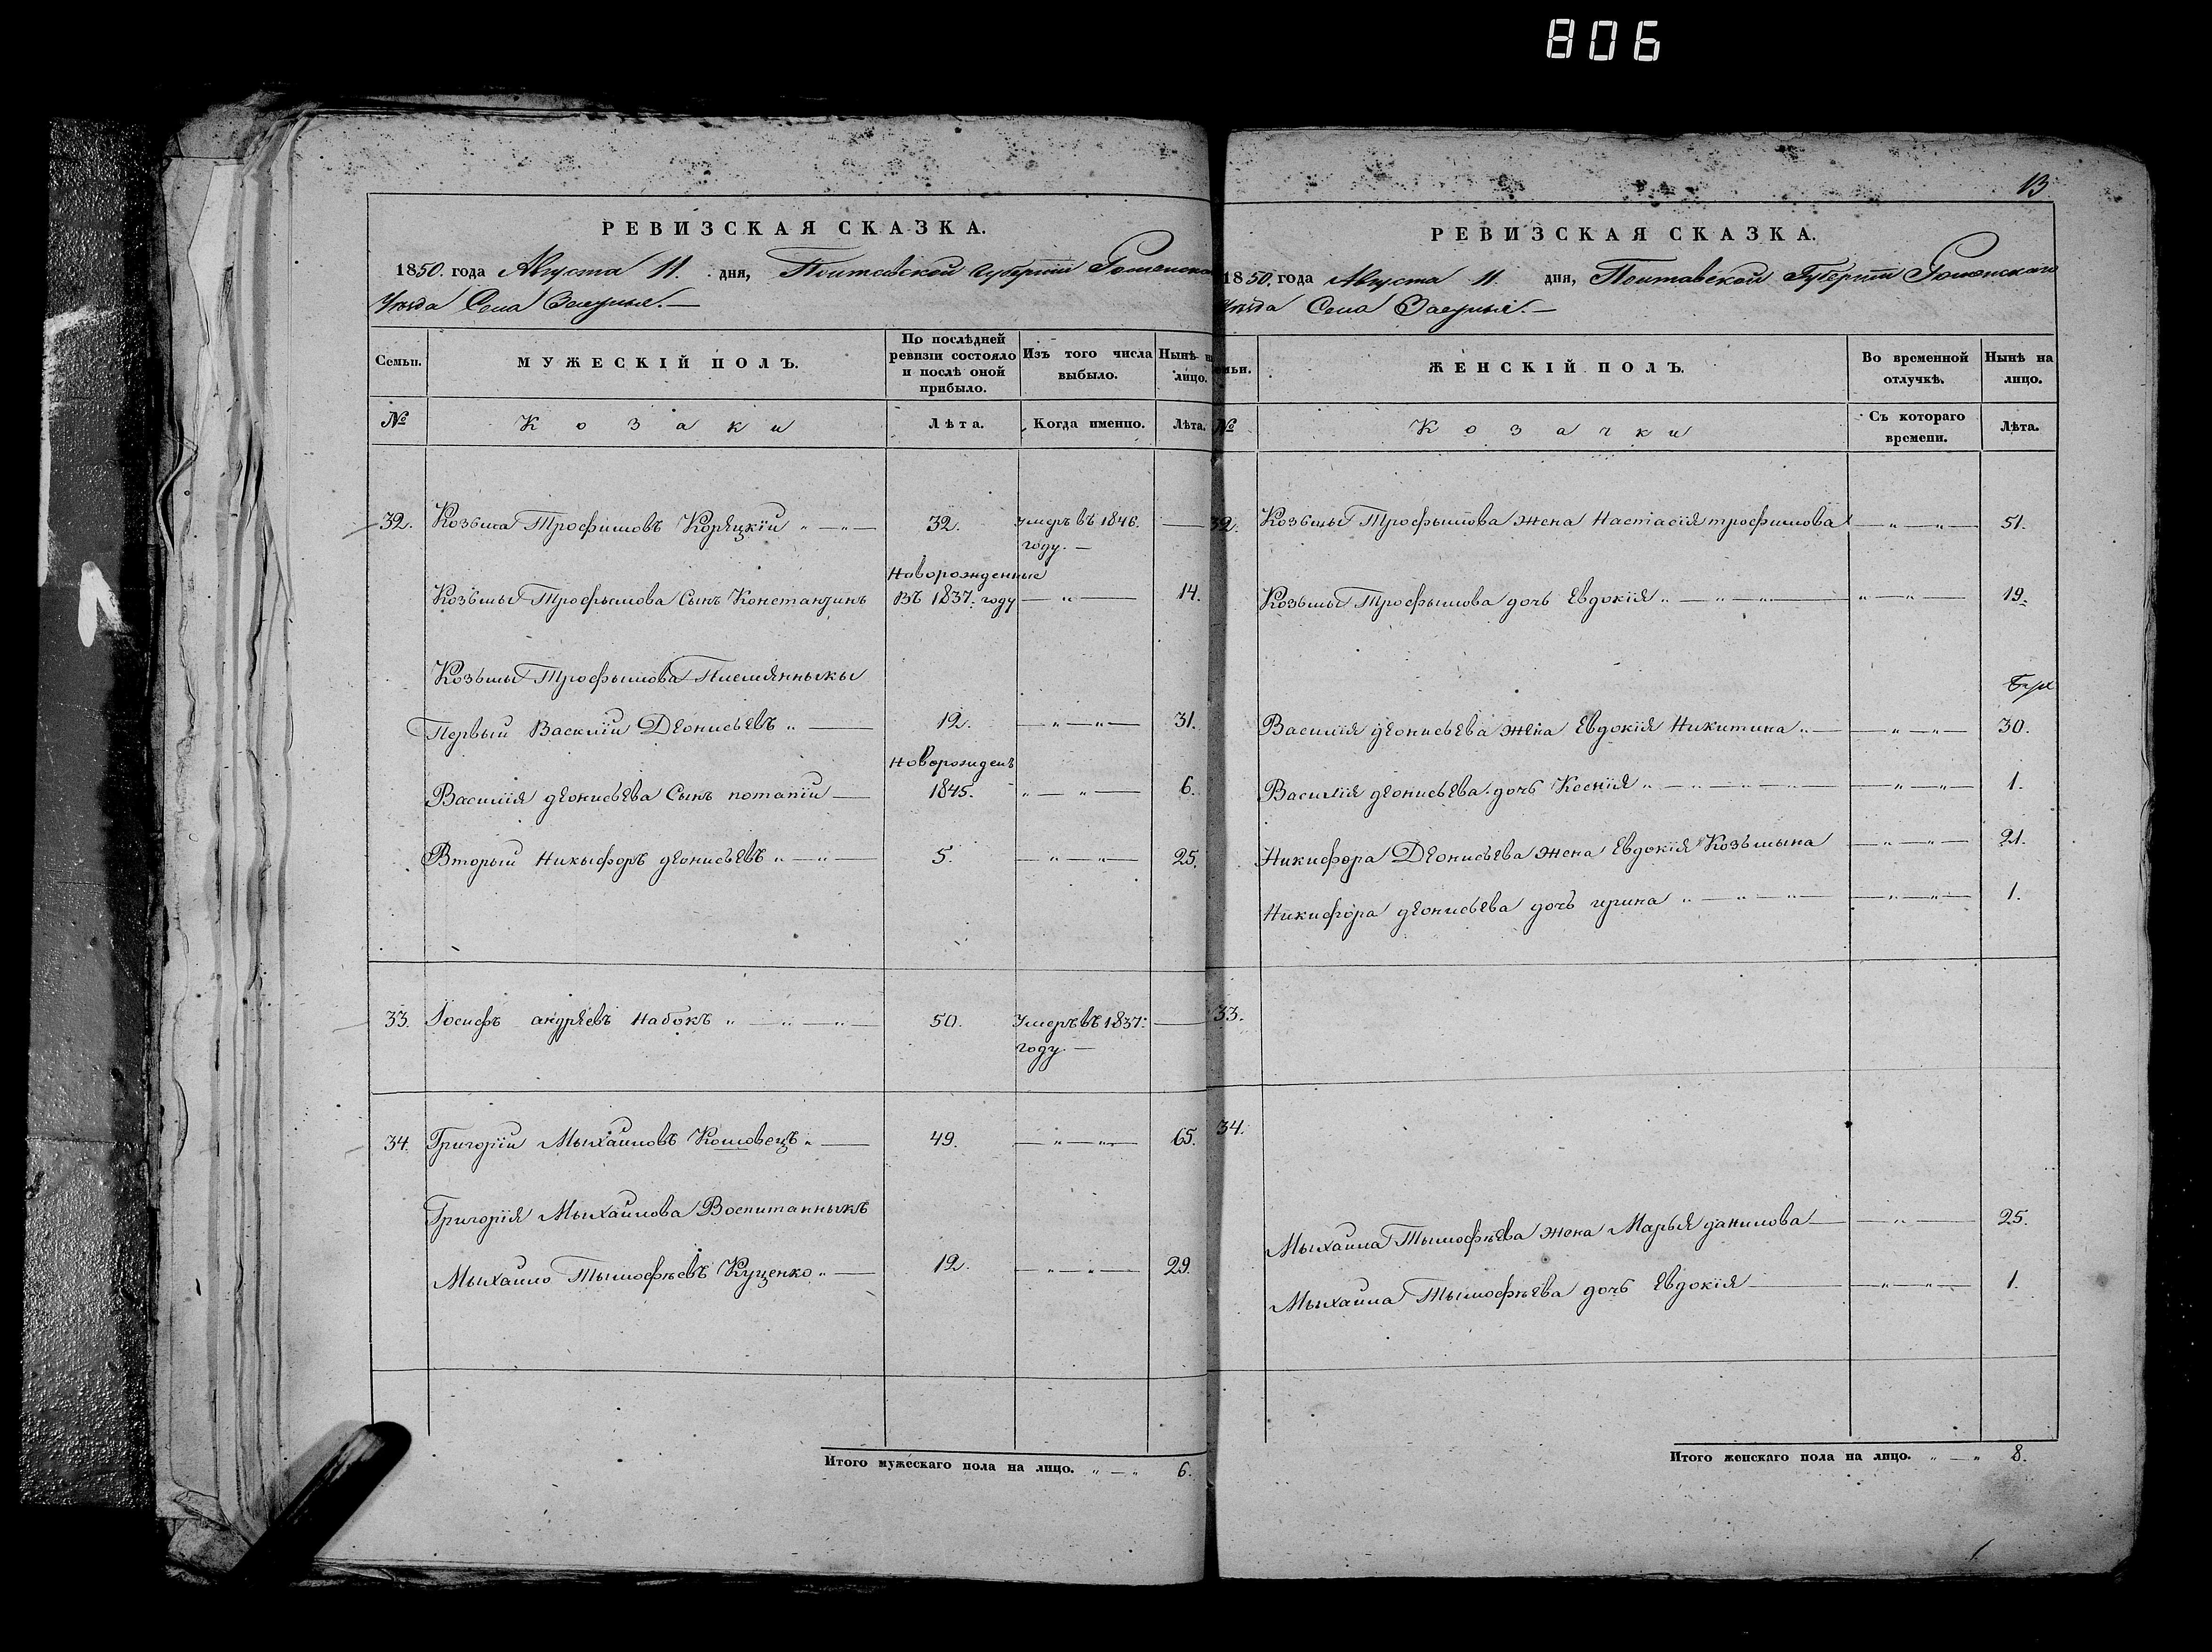 806
РЕВИЗСКАЯ СКАЗКА.
1850. года Августа 11. дня, Полтавской Губернiи Роменскаго
Уѣзда Села
Семьи. МУЖЕСКІЙ ПОЛЪ. По послѣдней ревизіи состояло и послѣ оной прибыло. Изъ того числа выбыло. Нынѣ на лицо.
№ Козаки Лѣта. Когда именно. Лѣта.
32. Козьма Трофимовъ Корецкїй 32. Умеръ въ 1846. году. —
Козьмы Трофымова Сынъ Константинъ Новорожденные Въ 1837. году — " — 14.
Козьмы Трофымова Племянныкы
Первый Василїй Деонисьевъ " — 12. — " — " — 31.
Василїя деонисьева Сынъ потапїй — Новорожденъ 1845. " — " — 6.
Вторый Никыфоръ деонисьевъ " — " — 5. — " — " — 25.
33. Іосифъ андреевъ Набокъ " — " — " — 50. Умеръ въ 1837. году. —
34. Григорїй Мыхайловъ " — 49. — " — " — 65.
Григорїя Мыхайлова Воспитанныкъ
Мыхайло Тымофѣевъ Куценко " — 12. — " — " — 29.
Итого мужескаго пола на лицо. " — " 6.
13
РЕВИЗСКАЯ СКАЗКА.
1850. года Августа 11. дня, Полтавской Губернiи Роменскаго
Уѣзда Села
Семьи. ЖЕНСКІЙ ПОЛЪ. Во временной отлучкѣ. Нынѣ на лицо.
№ Козачки Съ котораго времени. Лѣта.
32. Козьмы Трофымова жена Настасїя трофимова — " — " — 51.
Козьмы Трофымова дочь Евдокїя " — " — " — " — " — 19.
Василїя деонисьева жена Евдокїя Никитина " — — " — " — 30.
Василїя деонисьева дочь Ксенїя " — " — " — " — — " — " — 1.
Никифора Деонисьева жена Евдокїя Козьмына — " — " — 21.
Никифора деонисьева дочь ирина " — " — " — — " — " — 1.
33.
34.
Мыхайла Тымофѣева жена Марья данилова — — " — 25.
Мыхайла Тымофѣева дочь Евдокїя — — " — " — 1.
Итого женскаго пола на лицо. " — " 8.